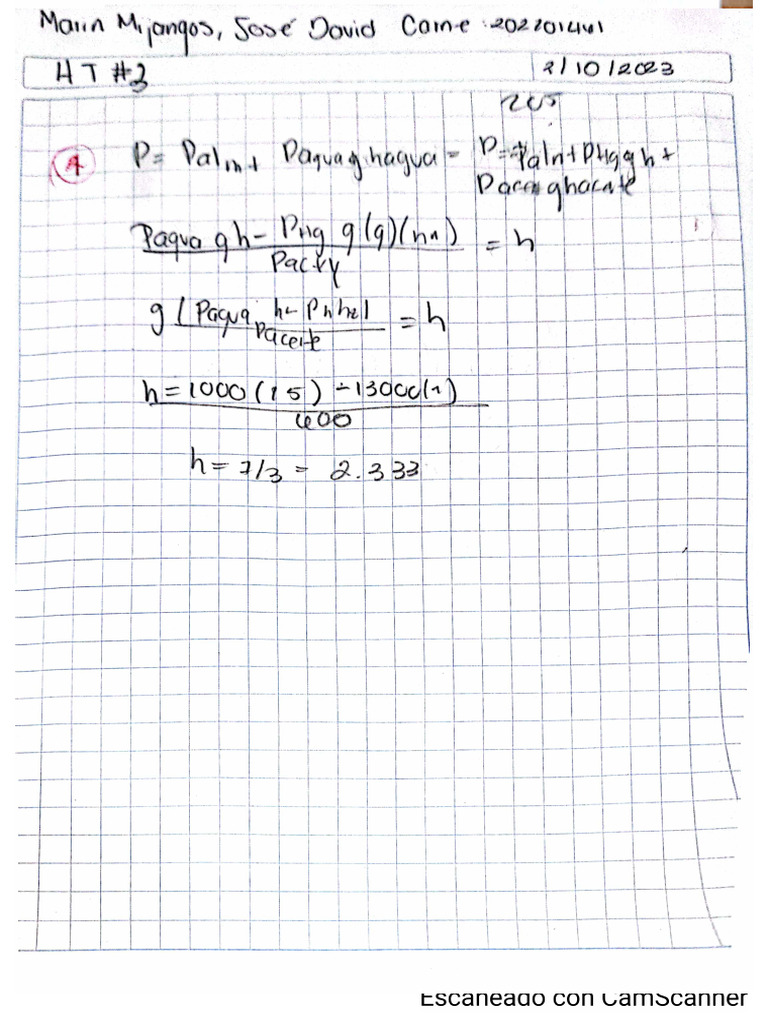 Marin Mijangos, José David Carne: 202201461
HT #3 2/10/2023
P = Patm + Pagua g hagua = P = Patm + PHg g h +
Paceite g hacate
Pagua gh - PHg g (g) (h) = h
g (Pagua h - Ph h2) = h
Paceite
h = 1000 (15) - 13000(1)
600
h = 7/3 = 2.333
Escaneado con CamScanner